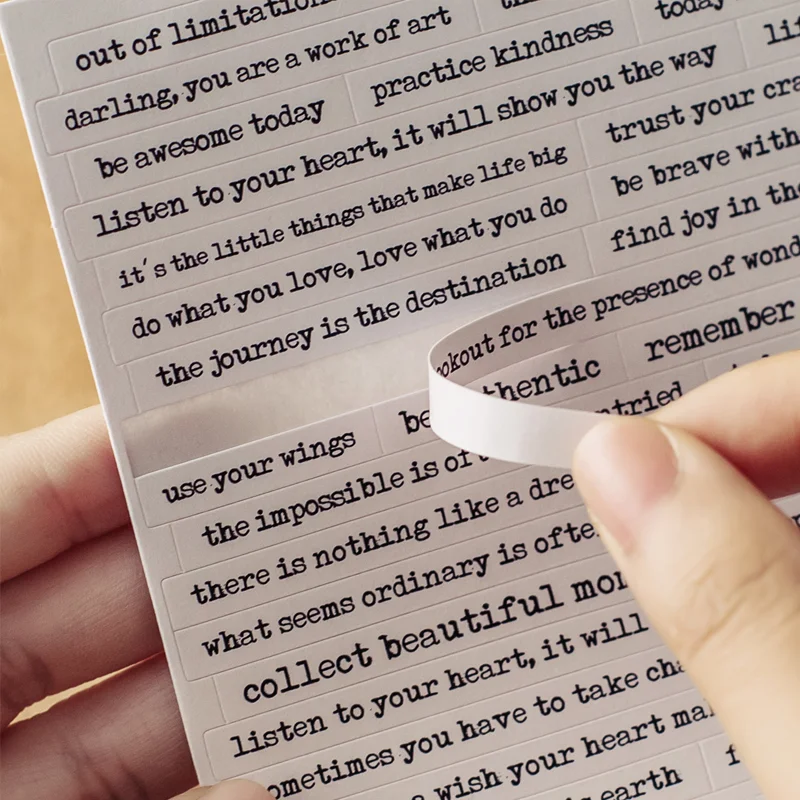 out of
darling, you are a work of art
today
be awesome today practice kindness
listen to your heart, it will show you the way
it's the little things that make life big trust your
do what you love, love what you do be brave with
the journey is the destination find joy in
for the presence of
use your wings remember
the impossible is
there is nothing like a
what seems ordinary is
collect beautiful
listen to your heart, it will
you have to take
wish your heart
earth